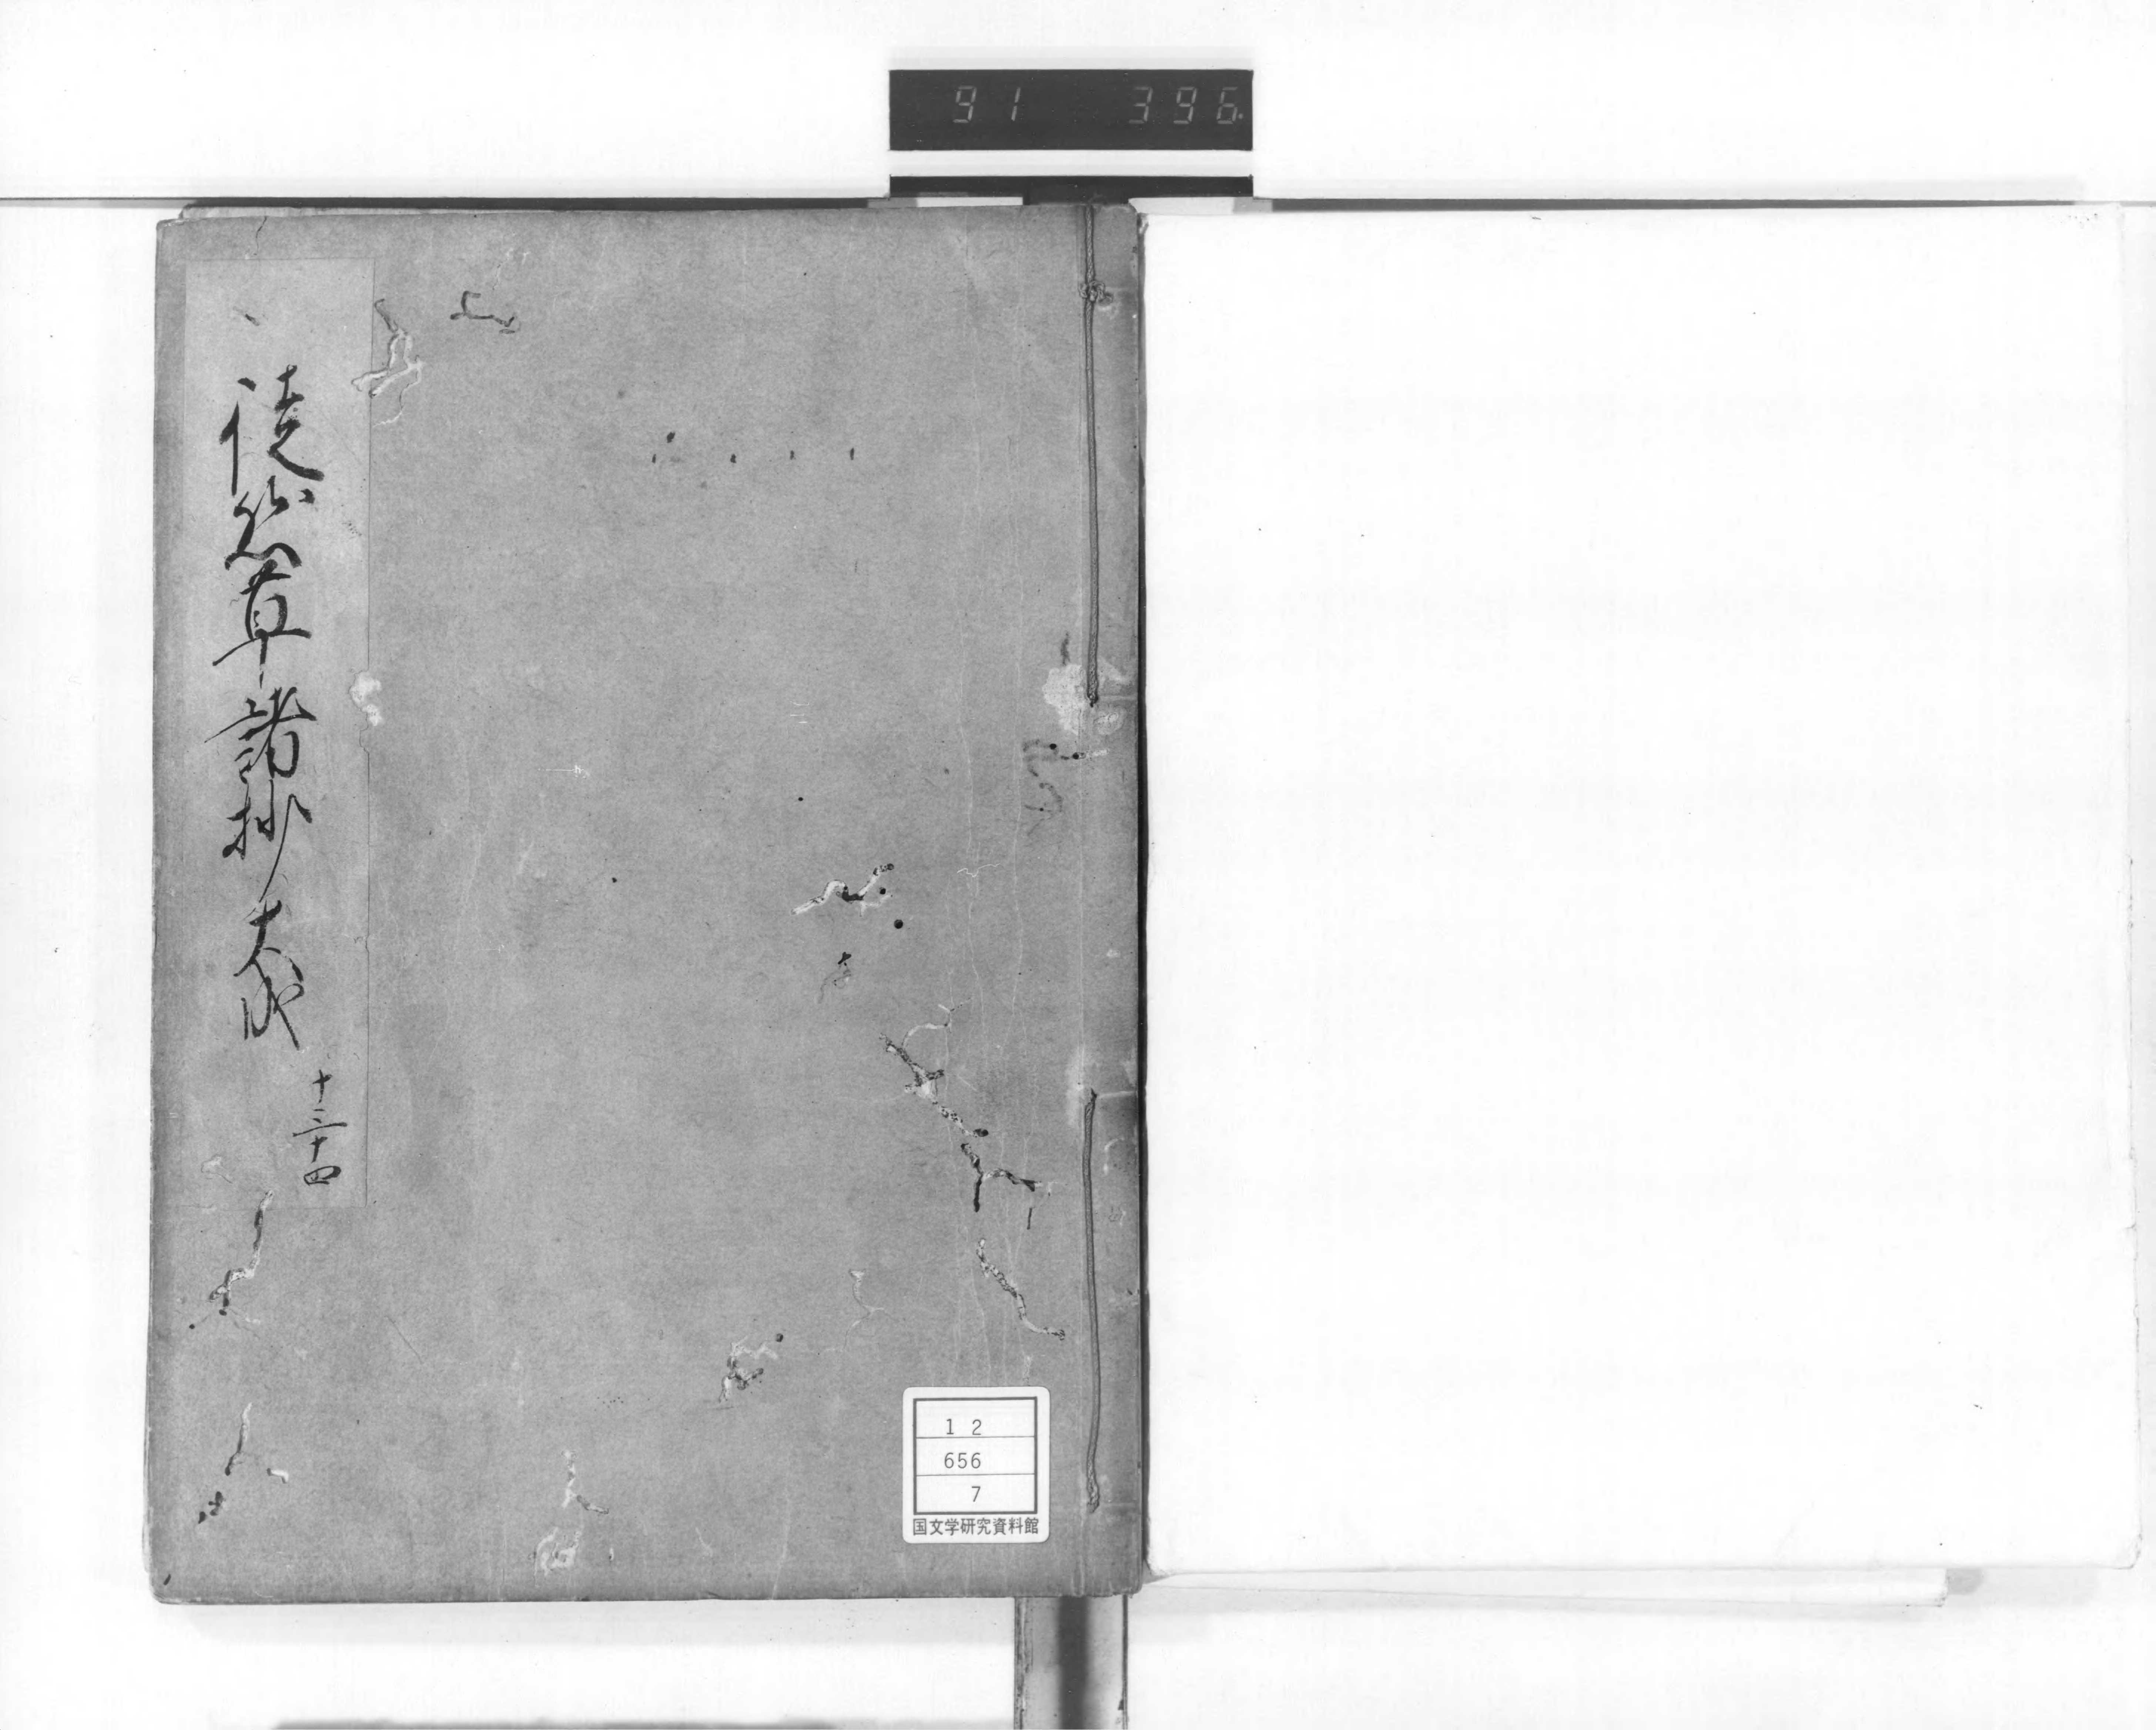 91 396
徒然草諸抄大成
十三
十四
12
656
7
国文学研究資料館